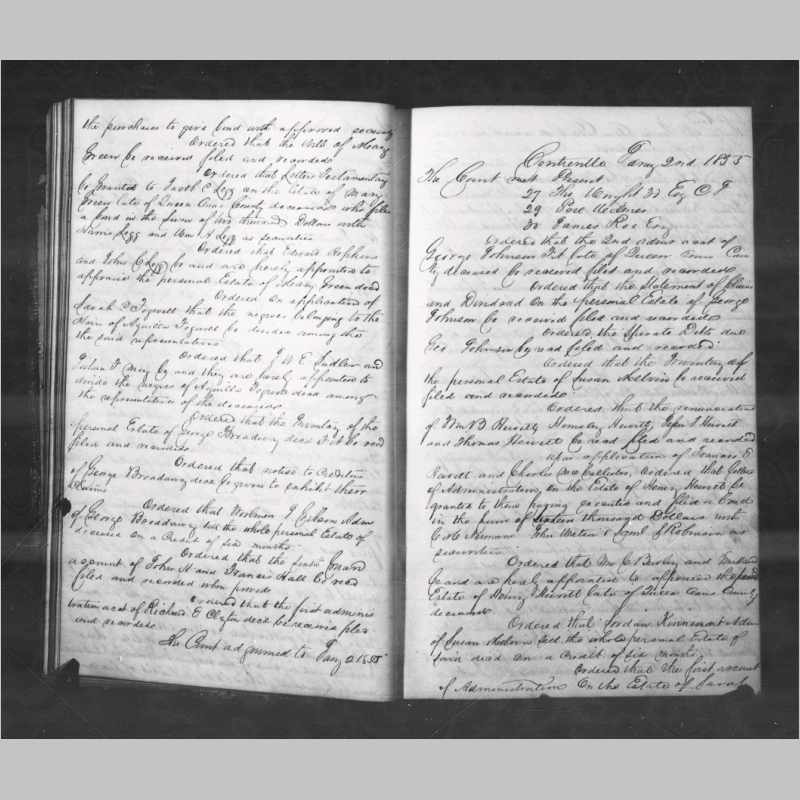 the purchaser to give bond with approved security
Ordered that the Will of Mary
Green be received filed and recorded
Ordered that Letters Testamentary
be granted to Jacob C Legg on the Estate of Mary
Green late of Queen Anns County deceased who filed
a bond in the sum of two thousand Dollars with
Harris Legg and Wm A Legg as securities
Ordered that Edward Hopkins
and John C Legg be and are hereby appointed to
appraise the personal Estate of Mary Green decd
Ordered on application of
Sarah C that the negroes belonging to the
Heirs of be divided among the
the said representatives
Ordered that J W E Sudler and
and they are hereby appointed to
divide the negroes of decd among
the representatives of the deceased
Ordered that the Inventory of the
personal Estate of George Broadway decd be recd
filed and recorded
Ordered that notice to Creditors
of George Broadway decd be given to exhibit their
Claims
Ordered that Adm
of George Broadway sell the whole personal Estate of
deceased on a Credit of six months
Ordered that the first Guard
account of John H and Francis Hall be recd
filed and recorded when proved
Ordered that the first adminis
tration acct of Richard E decd be received filed
and recorded
The Court adjourned to Jany 2 1855
Centreville Jany 2nd 1855
The Court met Present
27 Tho Wright 3d Esq C J
29
30 James Roe Esq
Ordered that the 2nd admn acct of
George Johnson late of Queen Anns Coun
ty deceased be received filed and recorded
Ordered that the Statement of Claims
and Dividend on the personal Estate of George
Johnson be received filed and recorded
Ordered the Sperate Debts due
Geo Johnson be recd filed and recorded
Ordered that the Inventory of
the personal Estate of Susan be received
filed and recorded
Ordered that the renunciation
of Wm B Hewitt, Hewitt, John S Hewitt
and Thomas Hewitt be recd filed and recorded
Upon application of Francis E
Hewitt and Charles ordered that Letters
of Administration on the Estate of Henry Hewitt be
granted to them securities and filed a Bond
in the sum of sixteen thousand Dollars with
John and Robinson as
securities
Ordered that Wm C and
be and are hereby appointed to appraise the personal
Estate of Henry Hewitt late of Queen Anns County
deceased
Ordered that Jordan Kinnamont Adm
of Susan sell the whole personal Estate of
said decd on a credit of six months
Ordered that the first account
of Administration on the Estate of Sarah